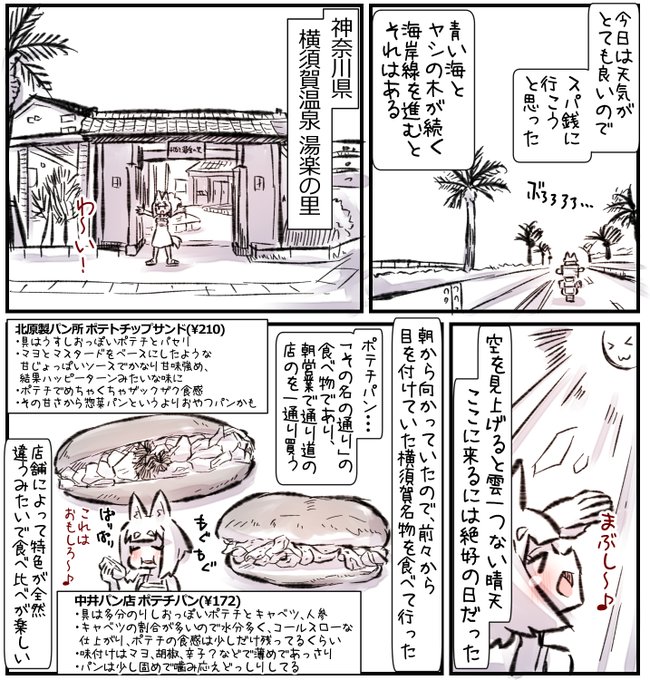 今日は天気が
とても良いので
スパ銭に
行こう
と思った
青い海と
ヤシの木が続く
海岸線を進むと
それはある
ぶろろろろ…
神奈川県
横須賀温泉 湯楽の里
わ～い!
空を見上げると雲一つない晴天
ここに来るには絶好の日だった
まぶし～♪
朝から向かっていたので、前々から
目を付けていた横須賀名物を食べて行った
ポテチパン…
「その名の通り」の
食べ物であり、
朝営業で通り道の
店のを一通り買う
北原製パン所 ポテトチップサンド(¥210)
・具はうすしおっぽいポテチとパセリ
・マヨとマスタードをベースにしたような
甘じょっぱいソースでかなり甘味強め、
結果ハッピーターンみたいな味に
・ポテチでめちゃくちゃザックザク食感
・その甘さから惣菜パンというよりおやつパンかも
もぐもぐ
ぱりぱり
これは
おもしろ～♪
店舗によって特色が全然
違うみたいで食べ比べが楽しい
中井パン店 ポテチパン(¥172)
・具は多分のりしおっぽいポテチとキャベツ、人参
・キャベツの割合が多いので水分多く、コールスローな
仕上がり、ポテチの食感は少しだけ残ってるくらい
・味付けはマヨ、胡椒、辛子？などで薄めであっさり
・パンは少し固めで噛み応えどっしりしてる